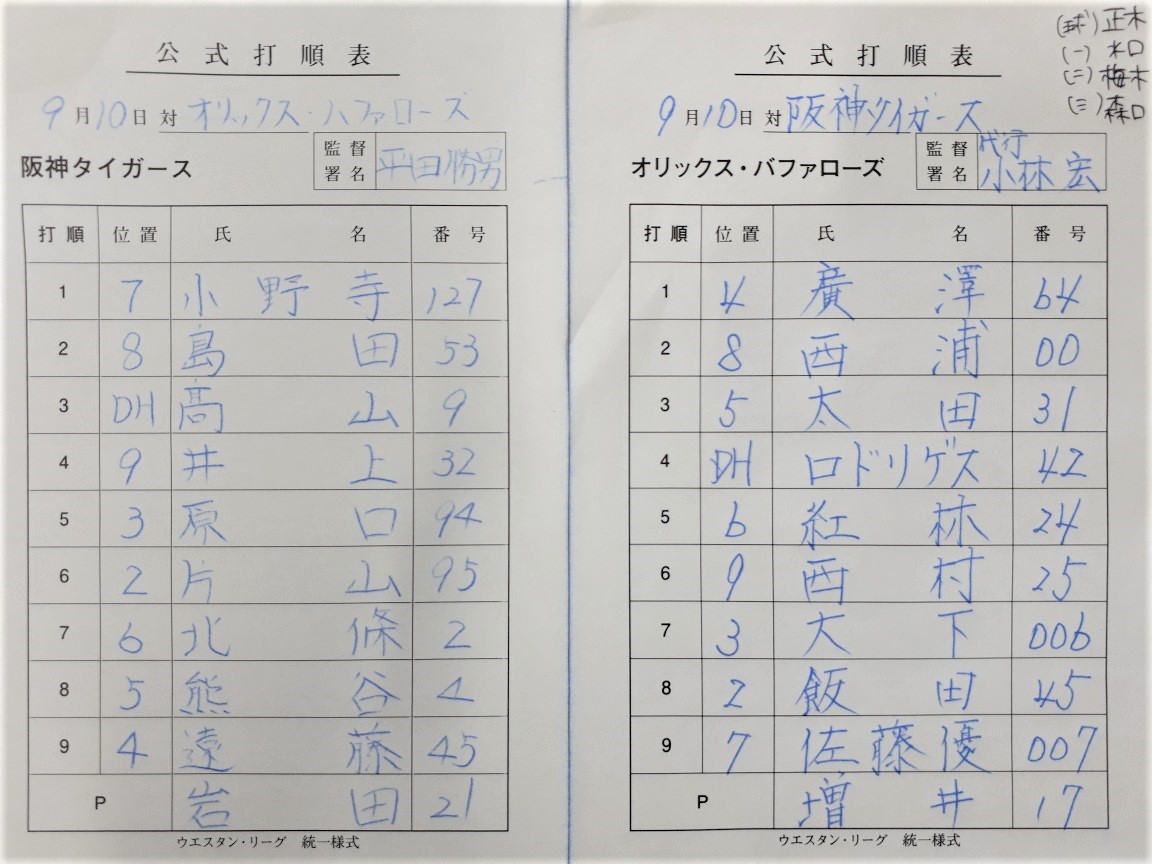 公式打順表
9月10日 対 オリックス・バファローズ
阪神タイガース 監督署名 平田勝男
打順 位置 氏名 番号
1 7 小野寺 127
2 8 島田 53
3 DH 髙山 9
4 9 井上 32
5 3 原口 94
6 2 片山 95
7 6 北條 2
8 5 熊谷 4
9 4 遠藤 45
P 岩田 21
ウエスタン・リーグ 統一様式
(球)正木
(一)水口
(二)梅木
(三)森口
公式打順表
9月10日 対 阪神タイガース
オリックス・バファローズ 監督署名 代行 小林宏
打順 位置 氏名 番号
1 4 廣澤 64
2 8 西浦 00
3 5 太田 31
4 DH ロドリゲス 42
5 6 紅林 24
6 9 西村 25
7 3 大下 006
8 2 飯田 45
9 7 佐藤優 007
P 増井 17
ウエスタン・リーグ 統一様式